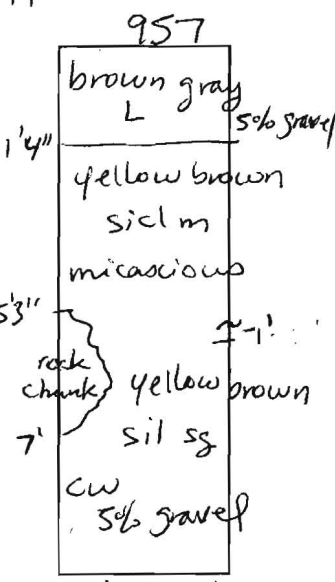 957
brown gray
L
5% gravel
1'4"
yellow brown
sicl m
micascious
5'3"
≈-1'
rock
chunk
yellow brown
7'
sil sg
cw
5% gravel